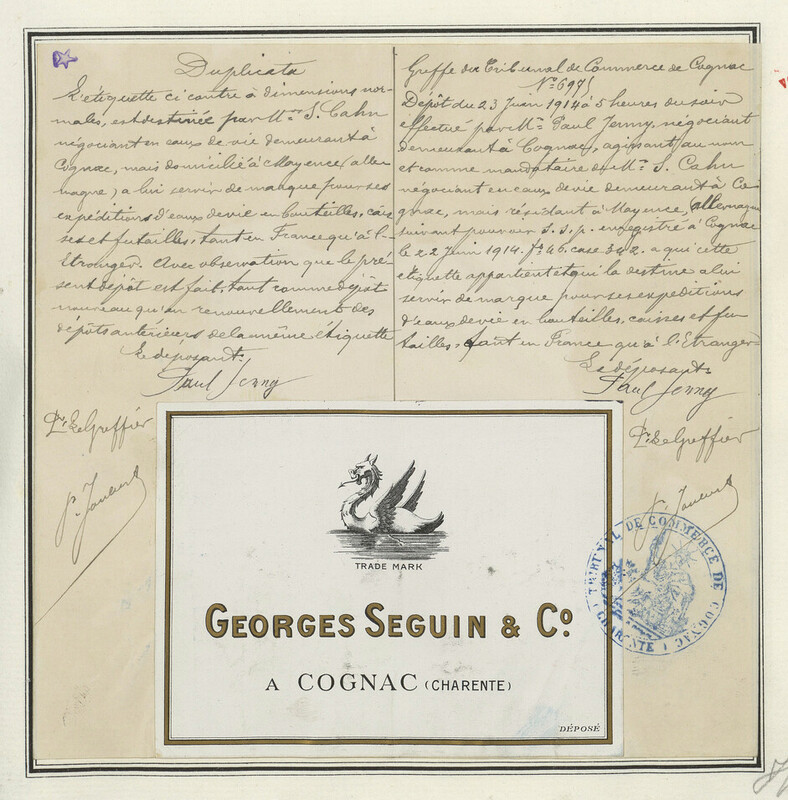 Duplicata
L'étiquette ci contre à dimensions nor-
males, est destinée par Mr. S. Cahn
négociant en eaux de vie demeurant à
Cognac, mais domicilié à Mayence (alle
magne) a lui servir de marque pour ses
expéditions d'eaux de vie en bouteilles, cais
ses et futailles, tant en France qu'à l'-
Etranger. Avec observation que le pré
sent dépôt est fait, tant comme dépôt
nouveau qu'en renouvellement des
dépôts antérieurs de la même étiquette
Le déposant,
Paul Jenny
Pr. Le Greffier
Greffe du Tribunal de Commerce de Cognac
No. 6971
Dépôt du 23 Juin 1914 à 5 heures du soir
effectué par Mr. Paul Jenny, négociant
demeurant à Cognac, agissant au nom
et comme mandataire de Mr. S. Cahn
négociant en eaux de vie demeurant à Co
gnac, mais résidant à Mayence, Allemagne
suivant pouvoir S.S.p. enregistré à Cognac
le 22 Juin 1914. fo. 46. case 342. a qui cette
étiquette appartient et qui la destine a lui
servir de marque pour ses expéditions
d'eaux de vie en bouteilles, caisses et fu
tailles, tant en France qu'à l'Etranger
Le déposant
Paul Jenny
Pr. Le Greffier
TRIBUNAL DE COMMERCE DE COGNAC
(CHARENTE)
TRADE MARK
GEORGES SEGUIN & Co.
A COGNAC (CHARENTE)
DÉPOSÉ